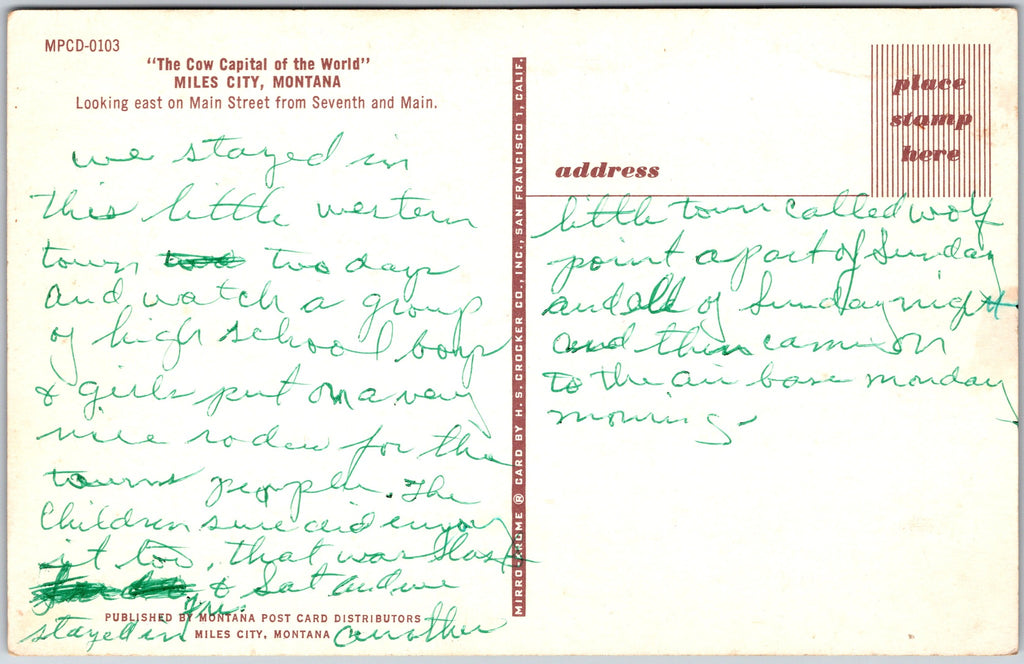 MPCD-0103
"The Cow Capital of the World"
MILES CITY, MONTANA
Looking east on Main Street from Seventh and Main.
we stayed in
this little western
town two days
and watch a group
of high school boys
& girls put on a very
nice rodeo for the
towns people. The
Children sure did enjoy
it too, that was last
Fri. & Sat and we
stayed in another
PUBLISHED BY MONTANA POST CARD DISTRIBUTORS
MILES CITY, MONTANA
MIRRO-KROME ® CARD BY H. S. CROCKER CO., INC., SAN FRANCISCO 1, CALIF.
place
stamp
here
address
little town called wolf
point a part of Sunday
and all of Sunday night
and then came on
to the air base monday
morning.